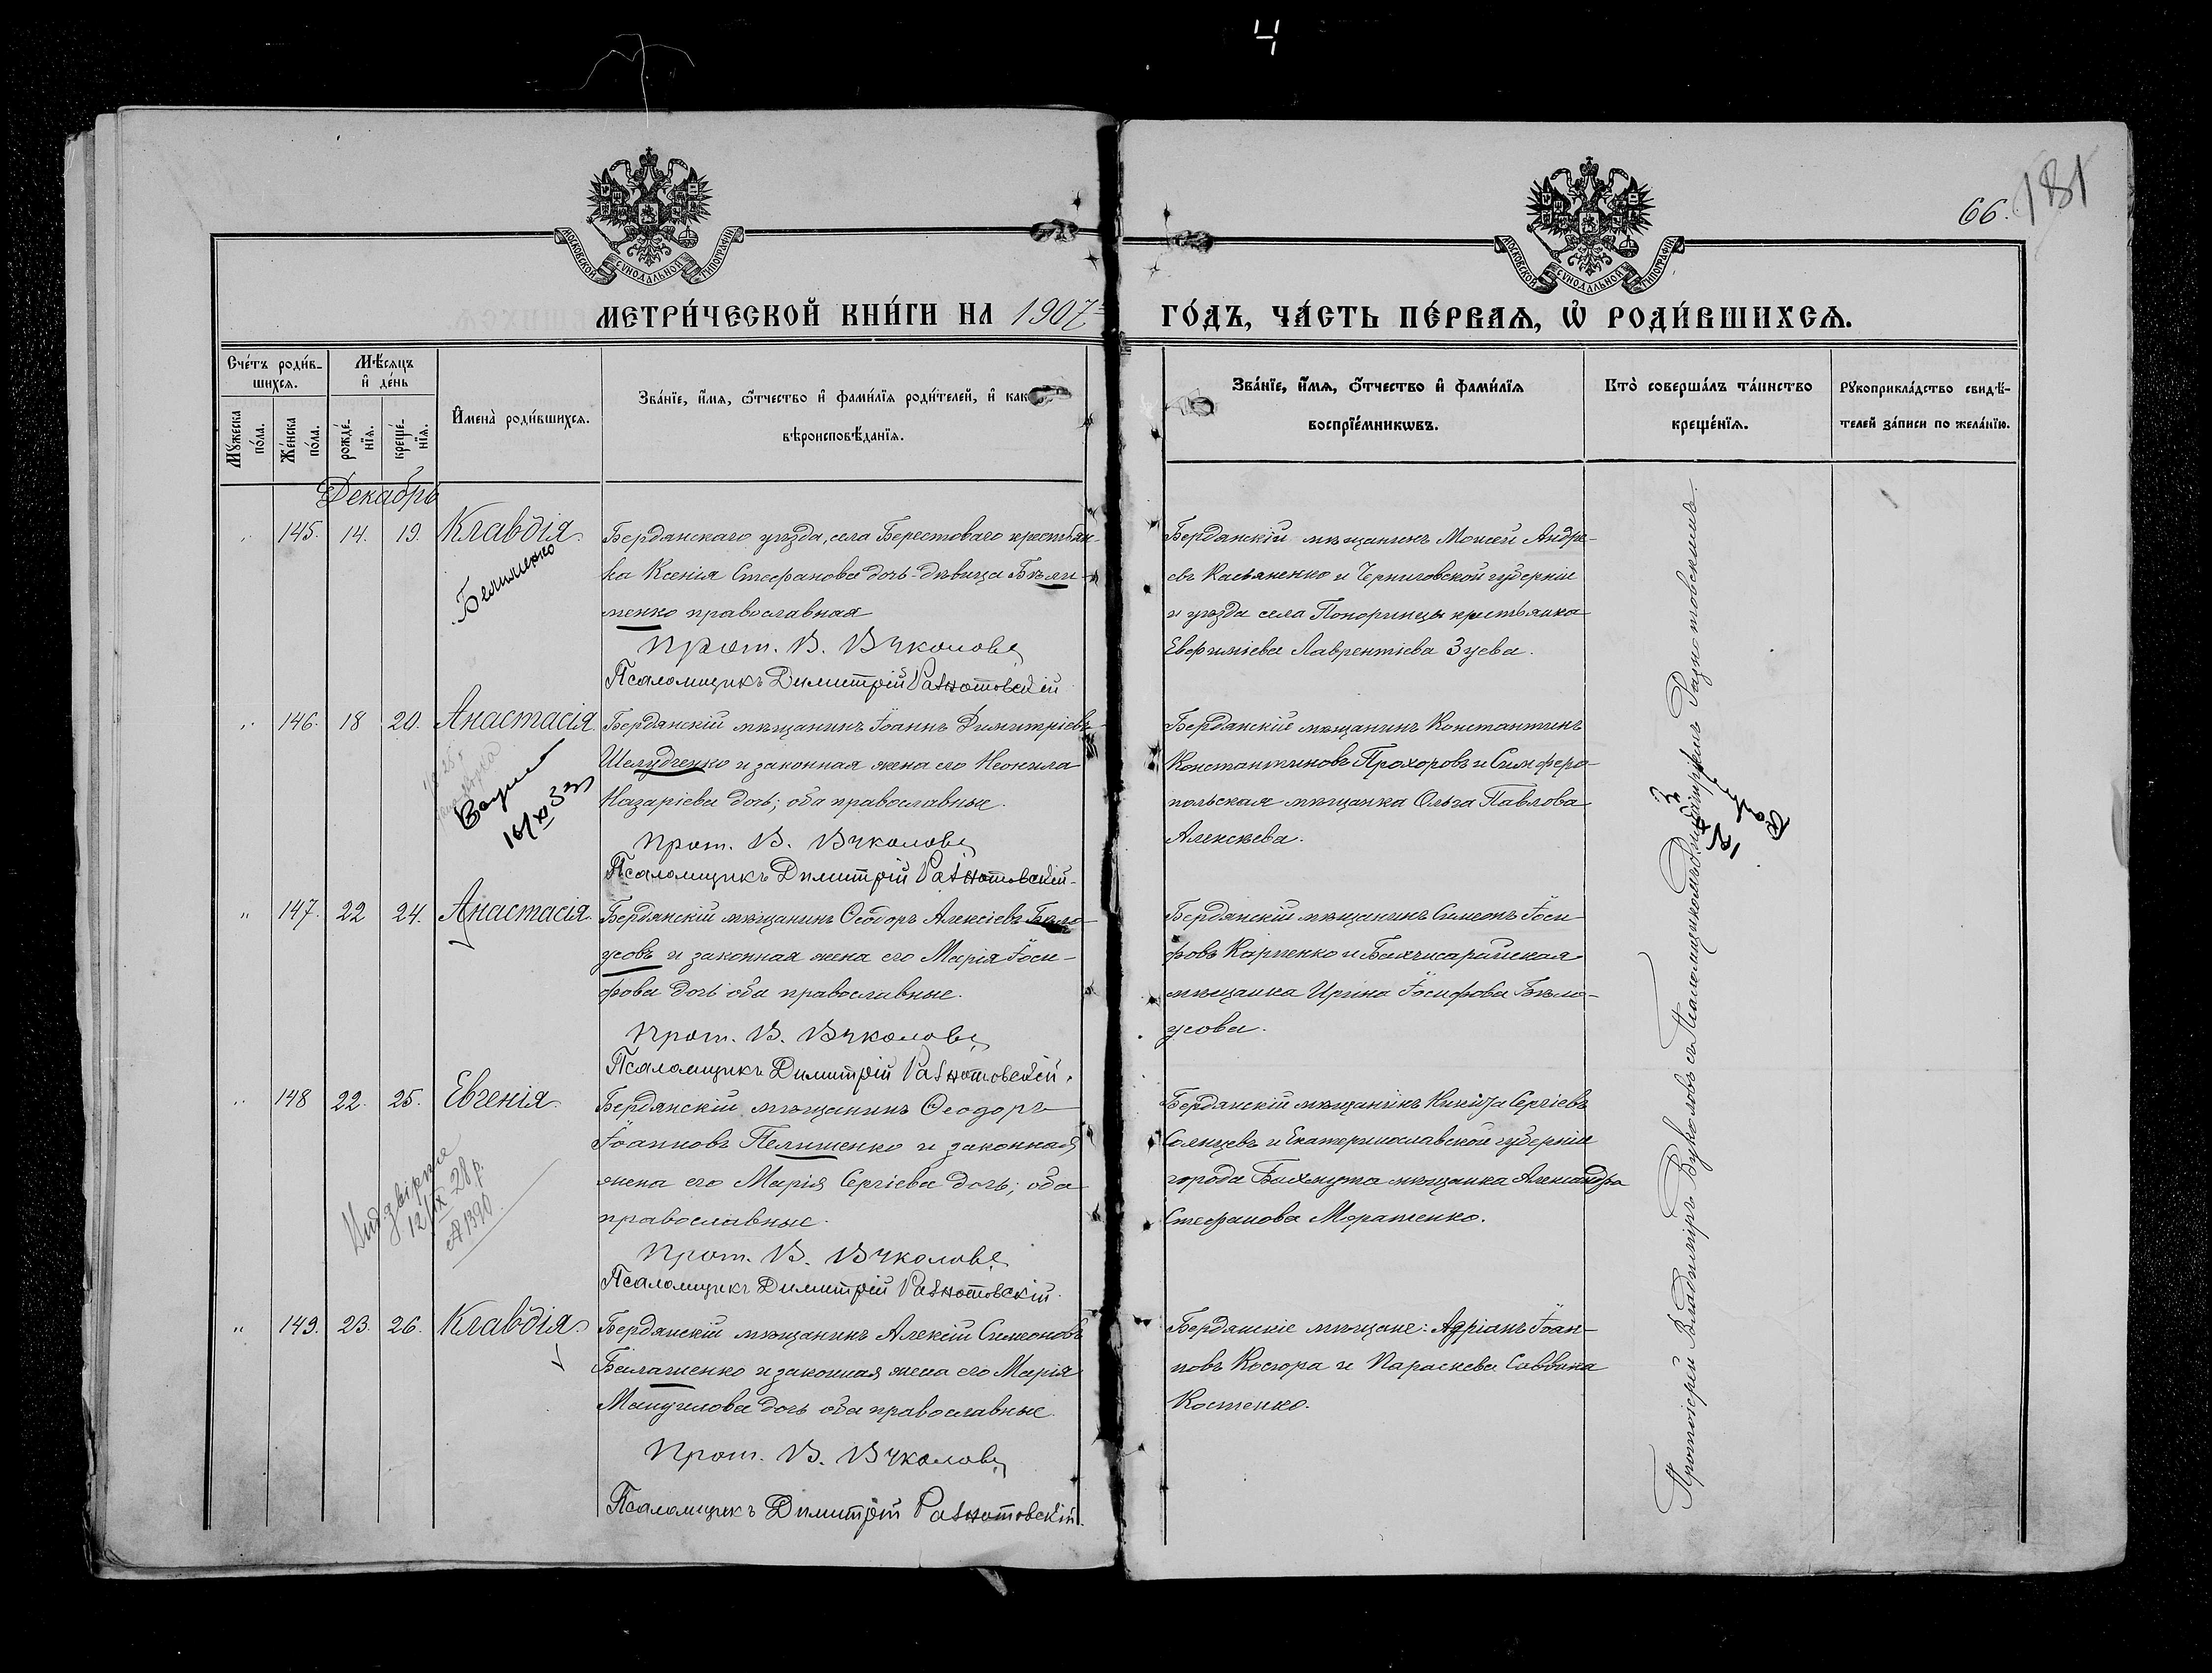 Ч
66.
181
МОСКОВСКОЙ СѴНОДАЛЬНОЙ ТИПОГРАФІИ
МОСКОВСКОЙ СѴНОДАЛЬНОЙ ТИПОГРАФІИ
МЕТРИ́ЧЕСКОЙ КНИ́ГИ НА 1907
ГО́ДЪ, ЧА́СТЬ ПЕ́РВАѦ, Ѡ РОДИ́ВШИХСѦ.
Сче́тъ роди́в-
шихсѧ.
Мѣ́сѧцъ
и҆ де́нь
Мꙋ́жеска
по́ла.
Же́нска
по́ла.
рожде́-
нїѧ.
креще́-
нїѧ.
И҆мена̀ роди́вшихсѧ.
Зва́нїе, и҆́мѧ, ѻ҆́тчество и҆ фами́лїѧ роди́телей, и҆ как
вѣроисповѣ́данїѧ.
Зва́нїе, и҆́мѧ, ѻ҆́тчество и҆ фами́лїѧ
воспрїе́мникѡвъ.
Кто̀ соверша́лъ та́инство
креще́нїѧ.
Рꙋкоприкла́дство свидѣ́-
телей за́писи по жела́нїю.
Декабрь
145. 14. 19. Клавдія.
Белименко
Бердянскаго уѣзда, села Берестоваго крестьян-
ка Ксенія Стефанова дочь-дѣвица Бѣли-
менко православная
Прот. В. Вуколовъ
Псаломщикъ Димитрій Разнотовскій
Бердянскій мѣщанинъ Моисей Андре-
евъ Касьяненко и Черниговской губерніи
и уѣзда села Понорницы крестьянка
Евфиміева Лаврентіева Зуева.
146. 18 20. Анастасія.
16/XI 33
Бердянскій мѣщанинъ Іоаннъ Димитріевъ
Шелудченко и законная жена его Неонила
Назаріева дочь; оба православные.
Прот. В. Вуколовъ
Псаломщикъ Димитрій Разнотовскій
Бердянскіе мѣщанинъ Константинъ
Константиновъ Прохоровъ и Симферо-
польская мѣщанка Ольга Павлова
Алексѣева.
" 147. 22 24. Анастасія.
Бердянскій мѣщанинъ Ѳеодоръ Алексіевъ Бѣло-
усовъ и законная жена его Марія Іоси-
фова дочь оба православные.
Прот. В. Вуколовъ
Псаломщикъ Димитрій Разнотовскій.
Бердянскій мѣщанинъ Симеонъ Іоси-
фовъ Карпенко и Бахчисарайская
мѣщанка Ирина Іосифова Бѣло-
усова.
148 22. 25. Евгенія.
12/IX 28 р.
№ 1390
Бердянскій мѣщанинъ Ѳеодоръ
Іоанновъ Пелишенко и законная
жена его Марія Сергіева дочь; оба
православные.
Прот. В. Вуколовъ
Псаломщикъ Димитрій Разнотовскій.
Бердянскій мѣщанинъ Никита Сергіевъ
Солнцевъ и Екатеринославской губерніи
города Бахмута мѣщанка Александра
Стефанова Моратенко.
" 149. 23. 26. Клавдія.
Бердянскій мѣщанинъ Алексій Симеоновъ
Балашенко и законная жена его Марія
Мануилова дочь оба православные
Прот. В. Вуколовъ
Псаломщикъ Димитрій Разнотовскій.
Бердянскіе мѣщане: Адріанъ Іоан-
новъ Косюра и Параскева Саввина
Костенко.
Протоіерей Владиміръ Вуколовъ съ Псаломщикомъ Димитріемъ Разнотовскимъ.